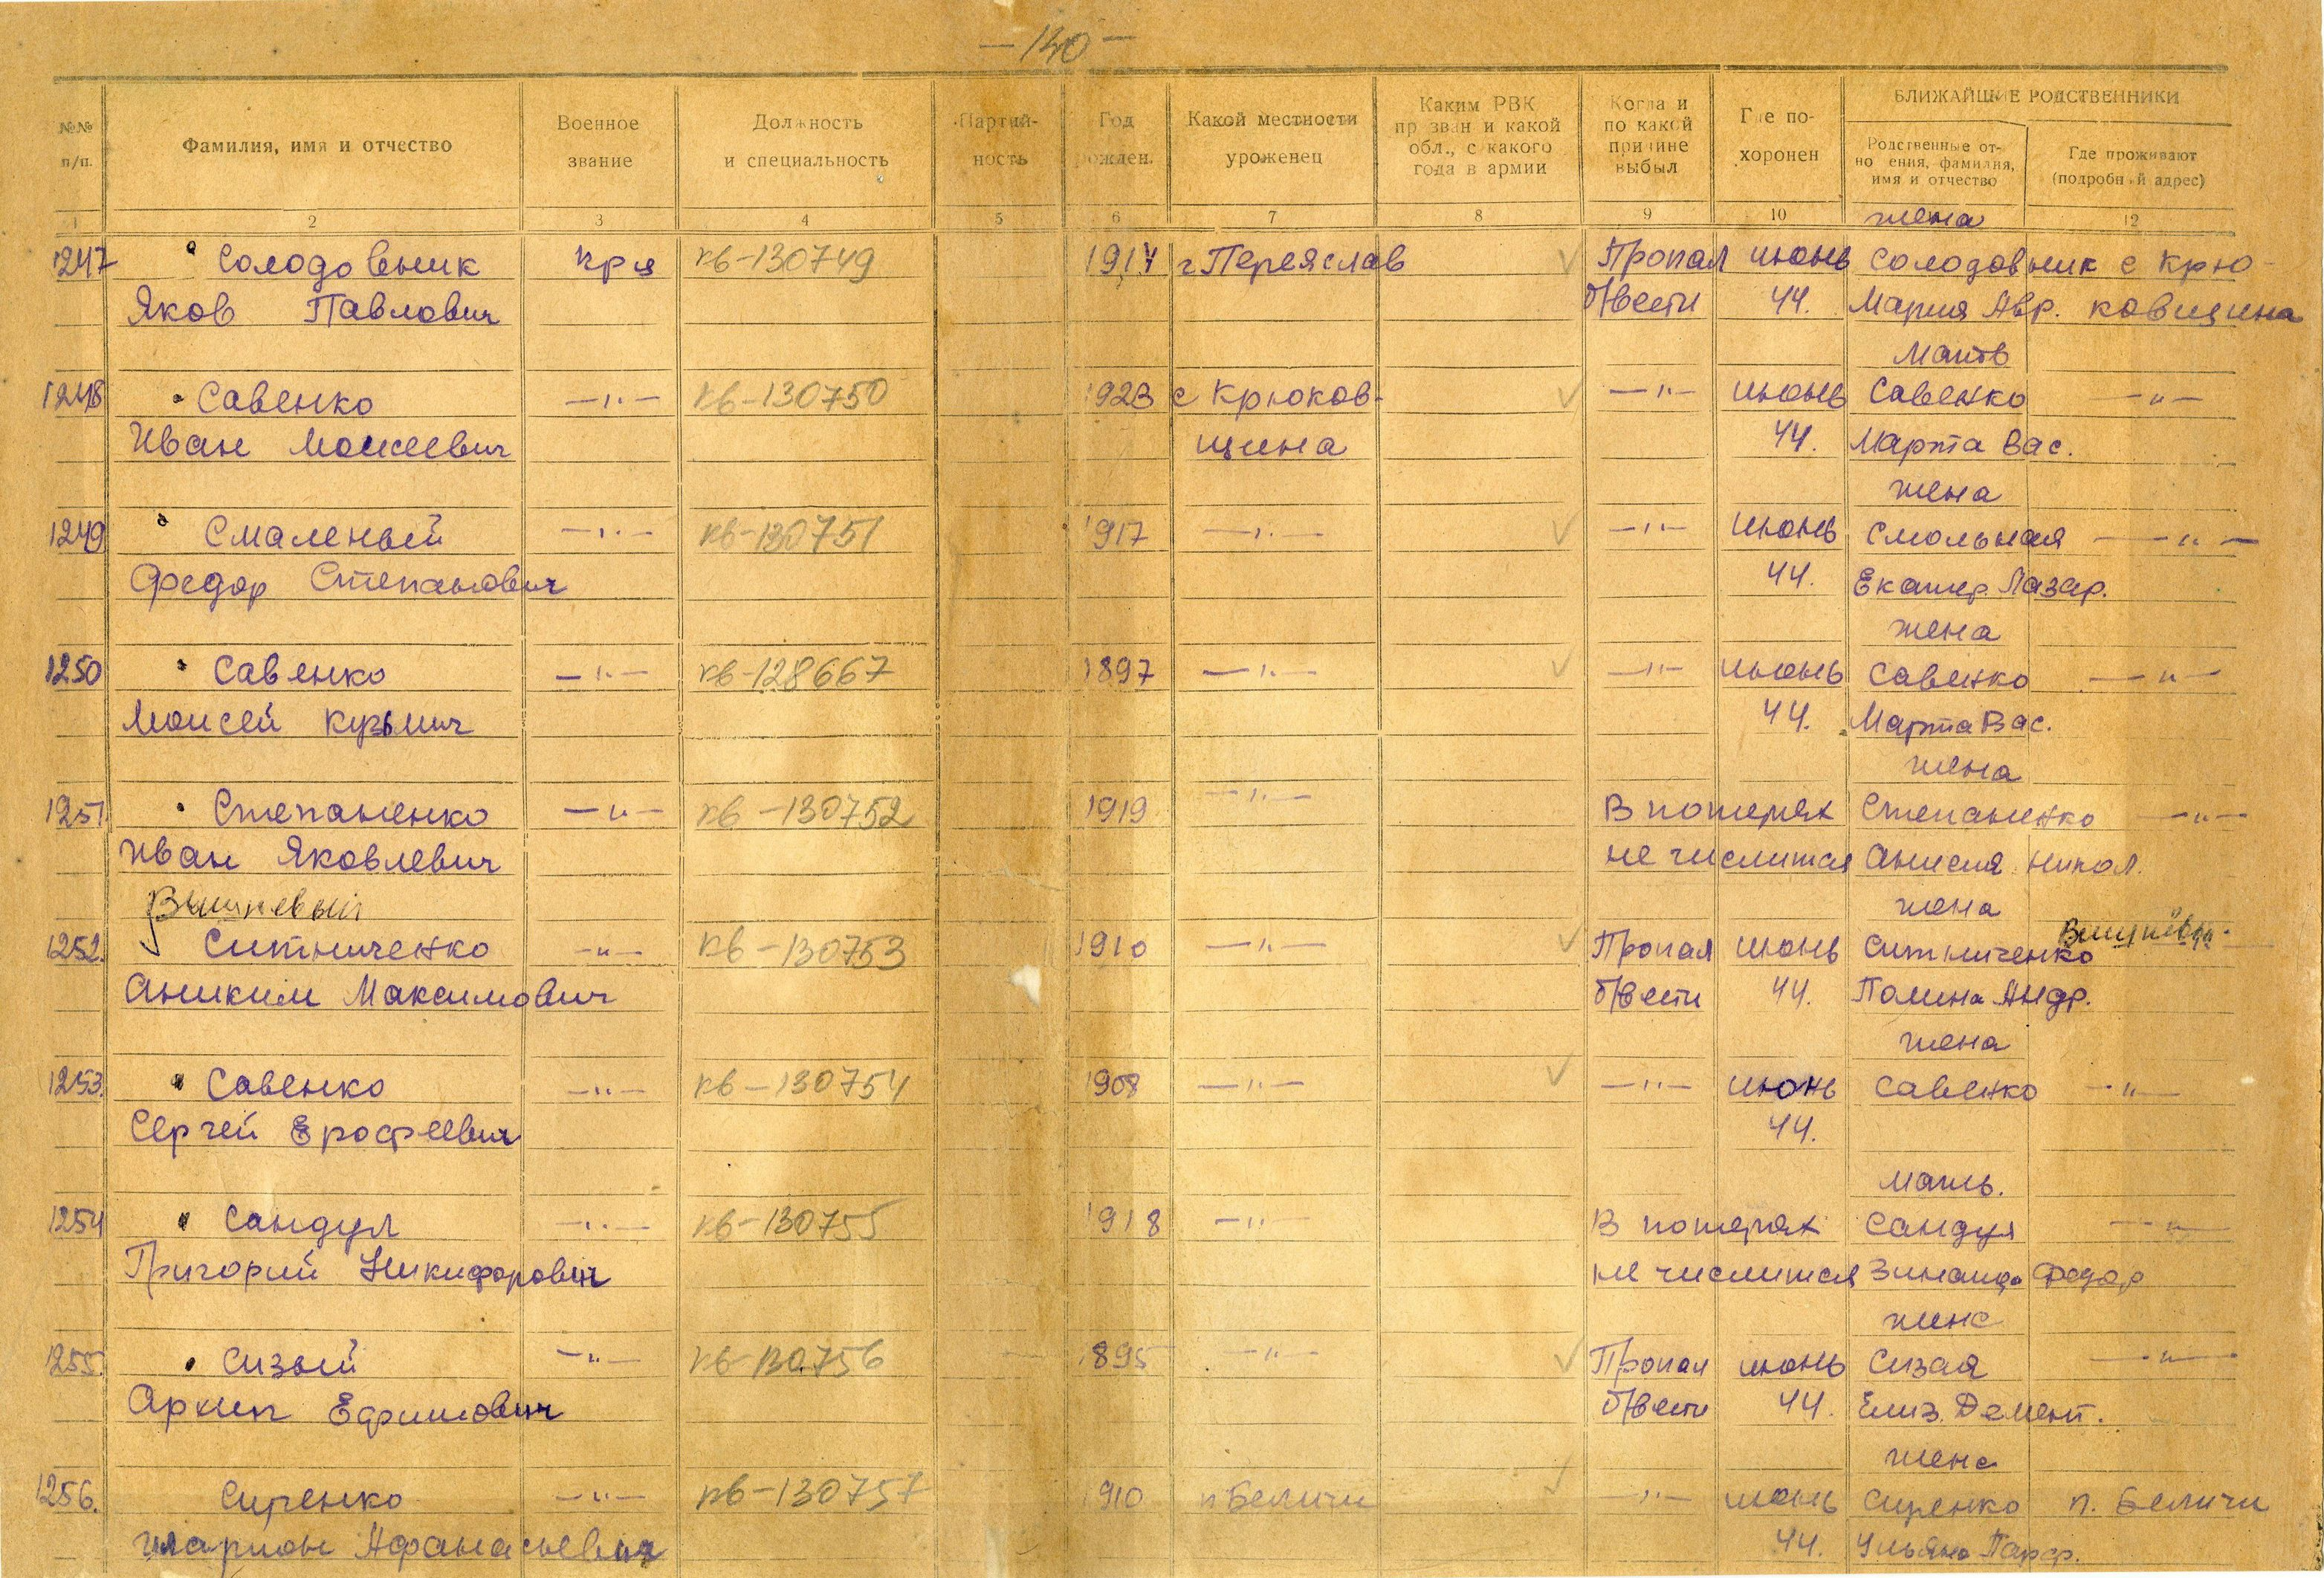 — 140 —
№№ п/п.
Фамилия, имя и отчество
Военное звание
Должность и специальность
Партийность
Год рожден.
Какой местности уроженец
Каким РВК призван и какой обл., с какого года в армии
Когда и по какой причине выбыл
Где похоронен
БЛИЖАЙШИЕ РОДСТВЕННИКИ
Родственные отношения, фамилия, имя и отчество
Где проживают (подробный адрес)
1 2 3 4 5 6 7 8 9 10 жена 12
1247 Солодовник кр-ц кв-130749 1914 г Переяслав Пропал июнь Солодовник с Крю-
Яков Павлович б/вести 44. Мария Авр. ковщина
Мать
1248 Савенко —"— кв-130750 1923 с Крюков- —"— июнь Савенко —"—
Иван Моисеевич щина 44. Марта Вас.
жена
1249 Смаленый —"— кв-130751 1917 —"— —"— июнь Смольная —"—
Федор Степанович 44. Екатер. Лазар.
жена
1250 Савенко —"— кв-128667 1897 —"— —"— июнь Савенко —"—
Моисей Кузьмич 44. Марта Вас.
жена
1251 Степаненко —"— кв-130752 1919 —"— В потерях Степаненко —"—
Иван Яковлевич не числится Анисия Никол.
Вишневый жена
1252. Ситниченко —"— кв-130753 1910 —"— Пропал июнь Ситниченко
Аниким Максимович б/вести 44. Полина Андр.
жена
1253. Савенко —"— кв-130754 1908 —"— —"— июнь Савенко —"—
Сергей Ерофеевич 44.
Мать.
1254 Сандул —"— кв-130755 1918 —"— В потерях Сандул —"—
Григорий Никифорович не числится Зинаида Федор
жена
1255. Сизый —"— кв-130756 1895 —"— Пропал июнь Сизая —"—
Архип Ефимович б/вести 44. Елиз. Демент.
жена
1256. Сиренко —"— кв-130757 1910 п Беличи —"— июнь Сиренко п. Беличи
Иларион Афанасьевич 44. Ульяна Парф.